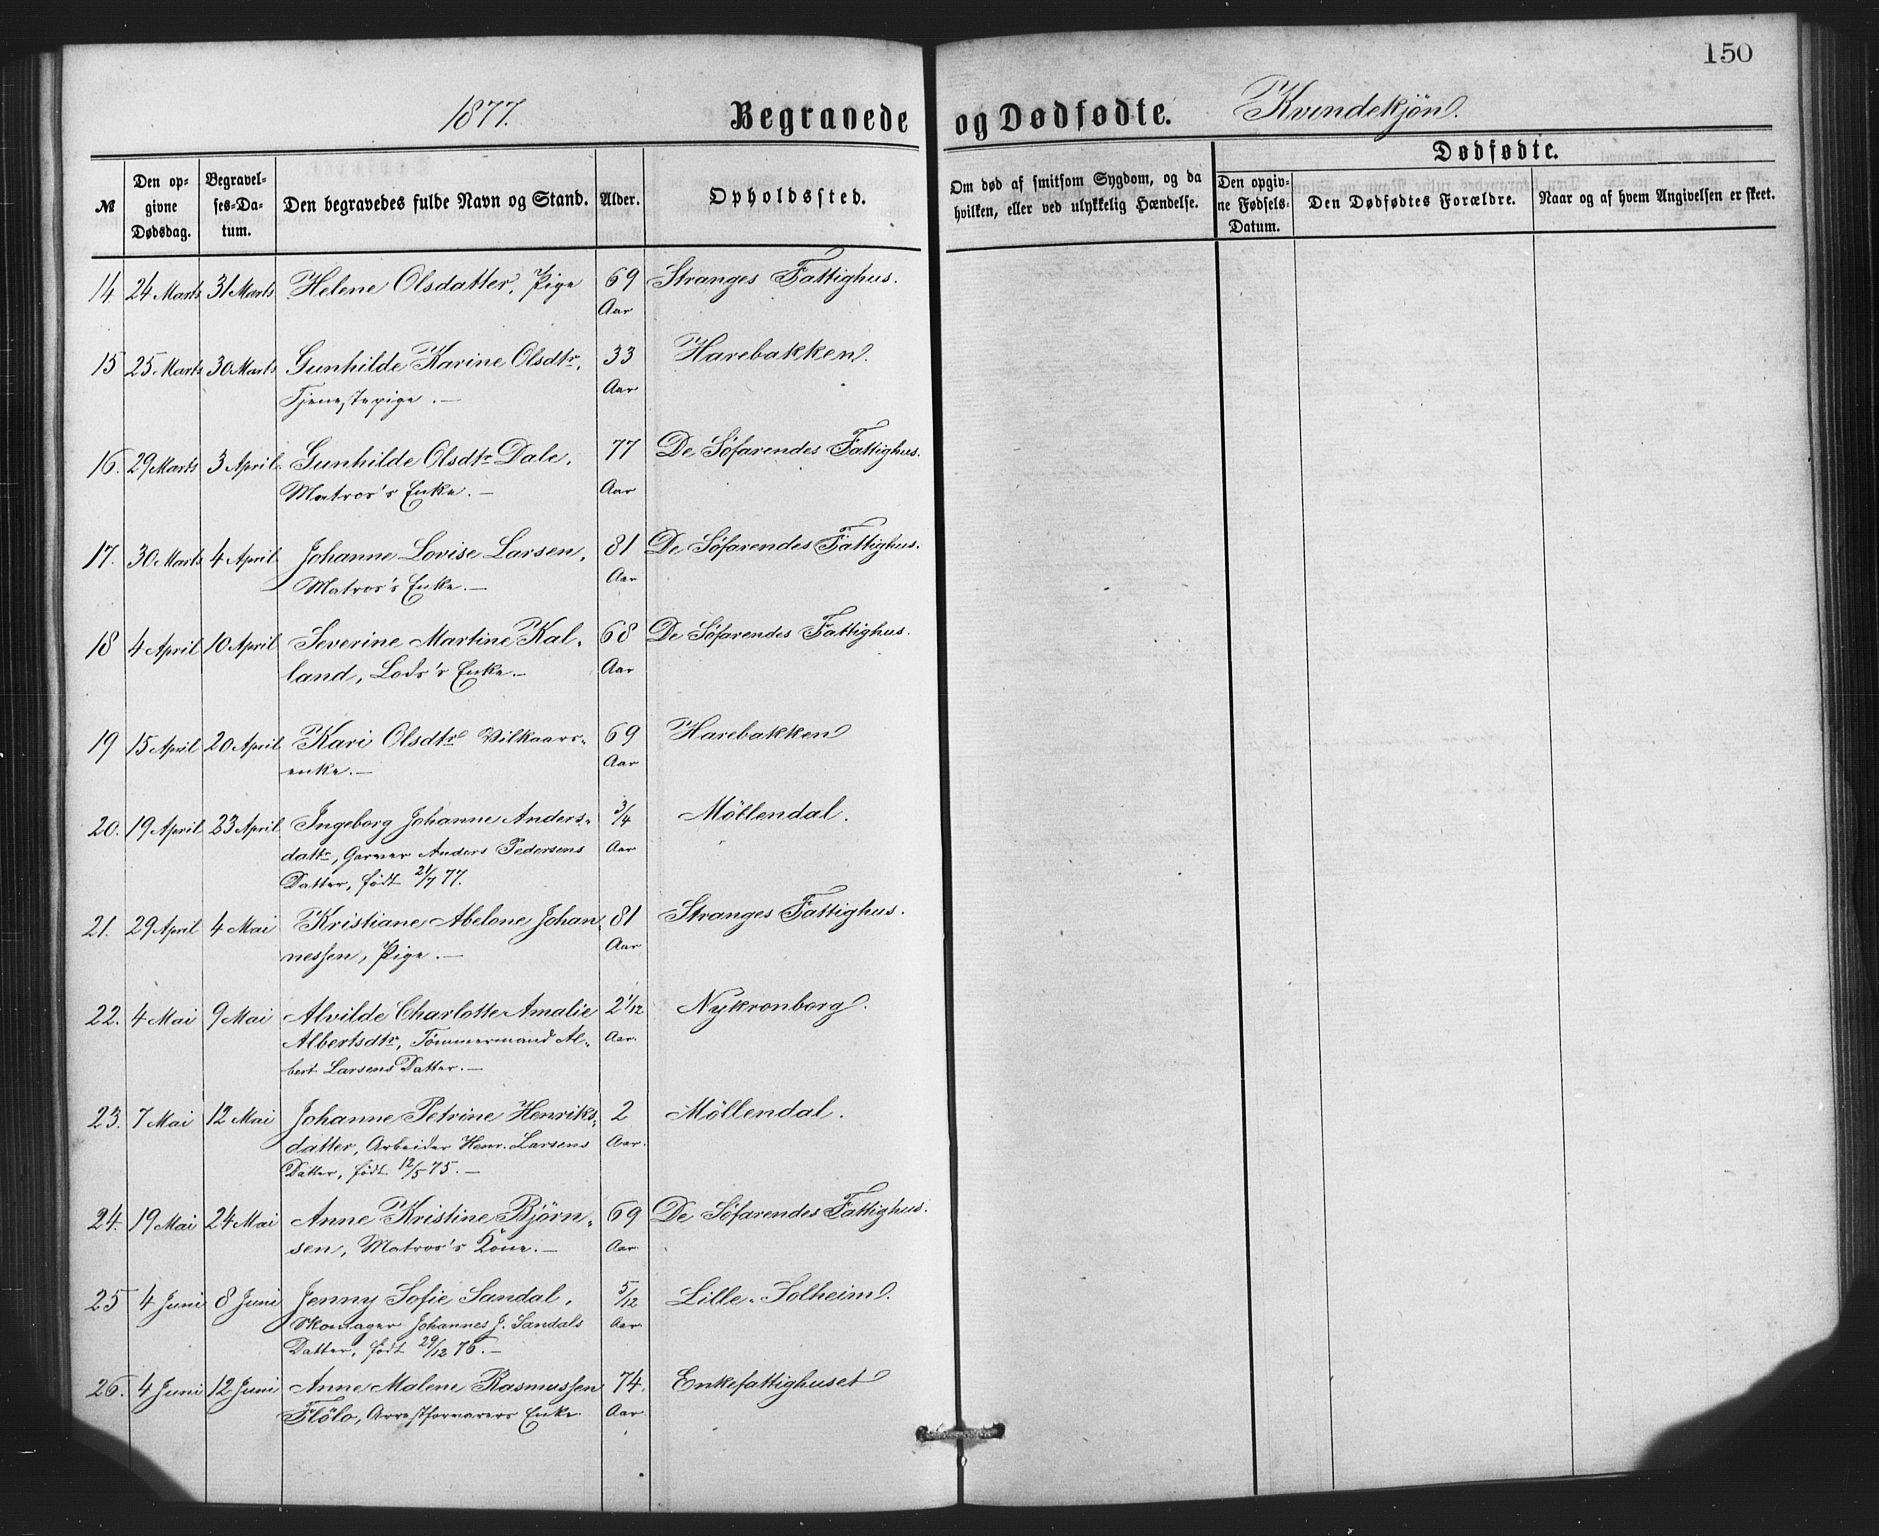 150
1877. Begravede og Dødfødte. Kvindekjøn.
№
Den opgivne Dødsdag.
Begravelses-Datum.
Den begravedes fulde Navn og Stand.
Alder.
Opholdssted.
Om død af smitsom Sygdom, og da hvilken, eller ved ulykkelig Hændelse.
Dødfødte.
Den opgivne Fødsels-Datum.
Den Dødfødtes Forældre.
Naar og af hvem Angivelsen er skeet.
14 24 Marts 31 Marts Helene Olsdatter, Pige 69 Stranges Fattighus.
Aar
15 25 Marts 30 Marts Gunhilde Karine Olsdtr, 33 Harebakken.
Tjenestepige. — Aar
16. 29 Marts 3 April Gunhilde Olsdtr Dale, 77 De Söfarendes Fattighus.
Matros's Enke. — Aar
17. 30 Marts 4 April Johanne Lovise Larsen, 81 De Söfarendes Fattighus.
Matros's Enke. — Aar
18 4 April 10 April Severine Martine Kal- 68 De Söfarendes Fattighus.
land, Lods's Enke. — Aar
19 15 April 20 April Kari Olsdtr Vilkaars- 69 Harebakken
enke. — Aar
20. 19 April 23 April Ingeborg Johanne Anders- 3/4 Möllendal.
dattr, Garver Anders Pedersens Aar
Datter, födt 21/7 77.
21. 29 April 4 Mai Kristiane Abelone Johan- 81 Stranges Fattighus.
nessen, Pige. — Aar
22. 4 Mai 9 Mai Alvilde Charlotte Amalie 2 1/12 Nykronborg.
Albertsdtr, Tömmermand Al- Aar.
bert Larsens Datter. —
23. 7 Mai 12 Mai Johanne Petrine Henriks- 2 Möllendal.
datter, Arbeider Henr. Larsens Aar.
Datter, födt 12/5 75. —
24. 19 Mai 24 Mai Anne Kristine Björn- 69 De Söfarendes Fattighus.
sen, Matros's Kone. — Aar
25 4 Juni 8 Juni Jenny Sofie Sandal, 5/12 Lille-Solheim.
Skomager Johannes J. Sandals Aar
Datter, födt 29/12 76. —
26. 4 Juni 12 Juni Anne Malene Rasmussen 74 Enkefattighuset
Flölo, Arrestforvarers Enke. Aar.